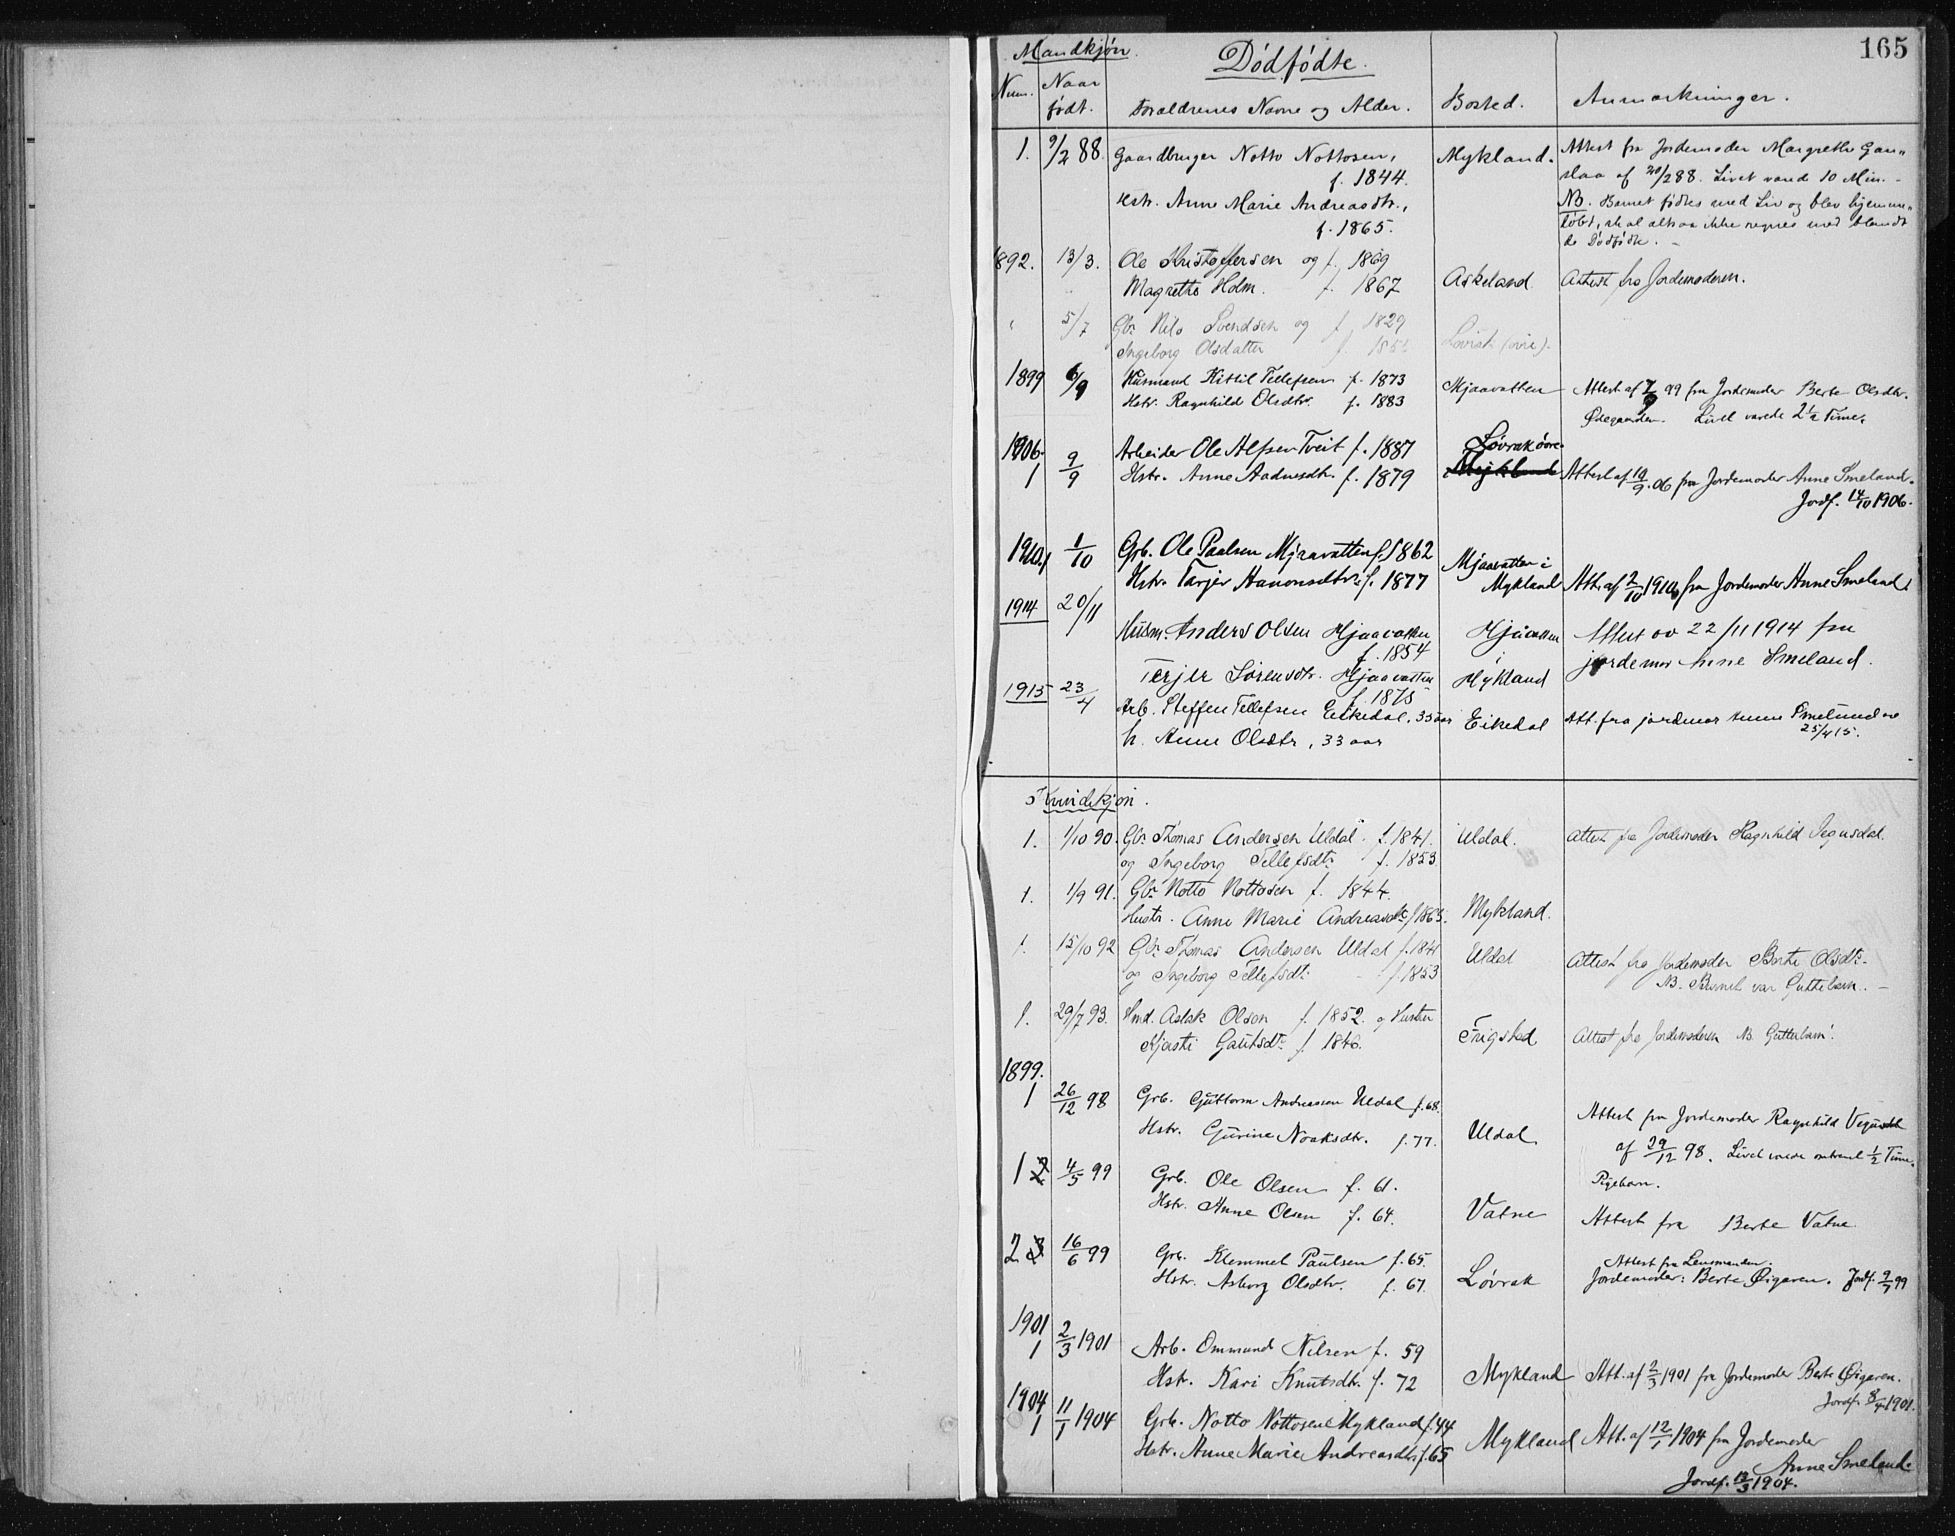 165
Mandkjön.
Dödfödte.
Num. Naar födt. Forældrenes Navne og Alder. Bosted. Anmærkninger.
1. 9/2 88. Gaardbruger Notto Nottosen, f. 1844. Mykland. Attest fra Jordemoder Margrethe Gauslaa af 20/2 88. Livet varede 10 Min.
Hstr. Anne Marie Andreasdtr., f. 1865. NB. Barnet födtes med Liv og blev hjemmedöbt, skal altsaa ikke regnes med blandt de Dödfödte.
1892. 13/3. Ole Kristoffersen og f. 1869
Magrethe Holm. f. 1867 Askeland Attest fra Jordemoderen.
" 5/7 Gbr. Nils Svendsen og f. 1829
Ingeborg Olsdatter f. Lövrak (övre).
1899 6/9 Husmand Kittil Tellefsen f. 1873 Mjaavatten Attest af 7/9 99 fra Jordemoder Berte Olsdtr.
Hstr. Ragnhild Olsdtr. f. 1883 Livet varede 2 1/2 Time.
1906. Arbeider Ole Alfsen Tveit f. 1887 Lövrak övre.
1 9/9 Hstr. Anne Aadnesdtr. f. 1879 Mykland Attest af 10/9 06 fra Jordemoder Anne Smeland.
Jordf. 14/10 1906.
1910. 1 1/10 Grb. Ole Paalsen Mjaavatten f. 1862 Mjaavatten i
Hstr. Tarjer Hanonsdtr. f. 1877 Mykland Att. af 2/10 1910 fra Jordemoder Anne Smeland.
1914 20/11 Husm. Anders Olsen Mjaavatten f. 1854 Mjåvatten Attest av 22/11 1914 fra
i jordemor Anne Smeland.
Terjer Sörensdtr. Mjaavatten f. 1875 Mykland
1915 23/4 Arb. Steffen Tellefsen Eikedal, 35 aar Eikedal Att. fra jordemor Anne Smeland av
h. Anne Olsdtr, 33 aar 25/4 15.
Kvindekjön.
1. 1/10 90. Gbr. Thomas Andersen Uldal f. 1841. Uldal. Attest fra Jordemoder Ragnhild Vegusdal.
og Ingeborg Tellefsdtr. f. 1853
1. 1/9 91. Gbr. Notto Nottosen f. 1844.
Hustr. Anne Marie Andreasdtr. f 1865. Mykland.
1. 15/10 92 Gbr. Thomas Andersen Uldal f. 1841 Uldal Attest fra Jordemoder Berte Olsdtr.
og Ingeborg Tellefsdtr. f. 1853 NB. Barnet var Guttebarn.
1. 29/7 93. Hmd. Aslak Olsen f. 1852. og Hustru
Kjersti Gautsdtr. f. 1846. Frigsted Attest fra Jordemoderen NB. Guttebarn!
1899.
1 26/12 98 Grb. Guttorm Andreassen Uldal f. 68. Attest fra Jordemoder Ragnhild Vegusdal
Hstr. Gurine Noaksdtr. f. 77. Uldal af 29/12 98. Livet varede omtrent 1/2 Time.
Pigebarn.
1 2 4/5 99 Grb. Ole Olsen f. 61.
Hstr. Anne Olsen f. 64. Vatne Attest fra Berte Vatne
2 3 16/6 99 Grb. Klemmet Paulsen f. 65. Attest fra Lensmanden.
Hstr. Asborg Olsdtr. f. 67. Lövrak Jordemoder: Berte Øigaren. Jordf. 9/7 99
1901
1 2/3 1901 Arb. Ommund Nilsen f. 59
Hstr. Kari Knutsdtr. f. 72 Mykland Att. af 2/3 1901 fra Jordemoder Berte Øigaren.
Jordf. 8/4 1901.
1904
1 11/1 1904 Grb. Notto Nottosen Mykland f. 44
Hstr. Anne Marie Andreasdtr. f. 65 Mykland Att. af 12/1 1904 fra Jordemoder
Anne Smeland.
Jordf. 13/3 1904.